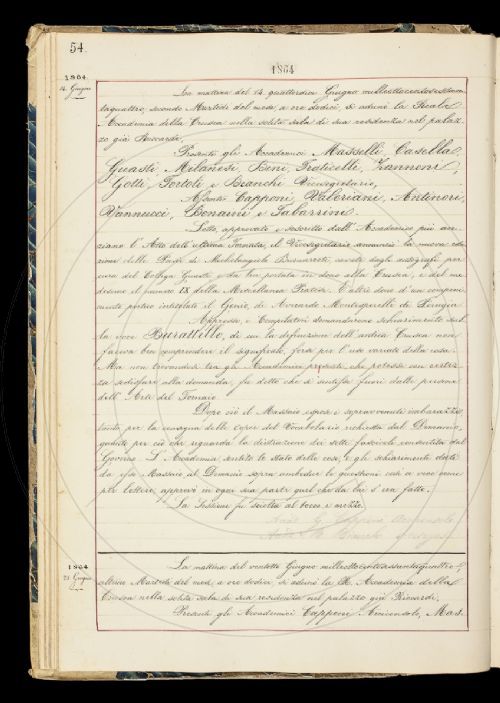 54.
1864
1864
14. Giugno
La mattina del 14. quattordici Giugno milleottocentosessan-
taquattro, secondo Martedì del mese, a ore dodici, si adunò la Reale
Accademia della Crusca nella solita sala di sua residenza nel palaz-
zo già Riccardi,
Presenti gli Accademici Masselli, Casella,
Guasti, Milanesi, Bini, Fraticelli, Zannoni,
Gotti, Tortoli e Bianchi Vicesegretario,
Assenti Capponi, Valeriani, Antinori,
Vannucci, Bonaini e Tabarrini.
Letto, approvato e soscritto dall'Accademico più an-
ziano l'Atto dell'ultima Tornata, il Vicesegretario annunziò la nuova edi-
zione delle Rime di Michelangelo Buonarroti, cavata dagli autografi per
cura del Collega Guasti e da lui portata in dono alla Crusca; e del me-
desimo il numero IX. della Miscellanea Pratese. E altro dono d'un componi-
mento poetico intitolato il Genio, di Averardo
Appresso, i Compilatori domandarono schiarimento sul-
la voce Burattello, di cui la definizione dell'antica Crusca non
faceva ben comprendere il significato, forse per l'uso variato della cosa.
Ma non trovandosi tra gli Accademici presenti chi potesse con certez-
za sodisfare alla domanda, fu detto che si sentisse fuori dalle persone
dell'Arte del Fornaio.
Dopo ciò il Massaio espose i sopravvenuti imbarazzi
tanto per la consegna delle copie del Vocabolario richiesta dal Demanio,
quanto per ciò che riguarda la distruzione dei sette fascicoli consentita dal
Governo. L'Accademia, sentito lo stato delle cose, e gli schiarimenti dati
da esso Massaio al Demanio sopra ambedue le questioni così a voce come
per lettera, approvò in ogni sua parte quel che da lui s'era fatto.
La Sessione fu sciolta al tocco e mezzo.
G. Capponi Arciconsolo
1864
28. Giugno
La mattina del ventotto Giugno milleottocentosessantaquattro,
ultimo Martedì del mese, a ore dodici, si adunò la R. Accademia della
Crusca nella solita sala di sua residenza nel palazzo già Riccardi,
Presenti gli Accademici Capponi Arciconsolo, Mas-